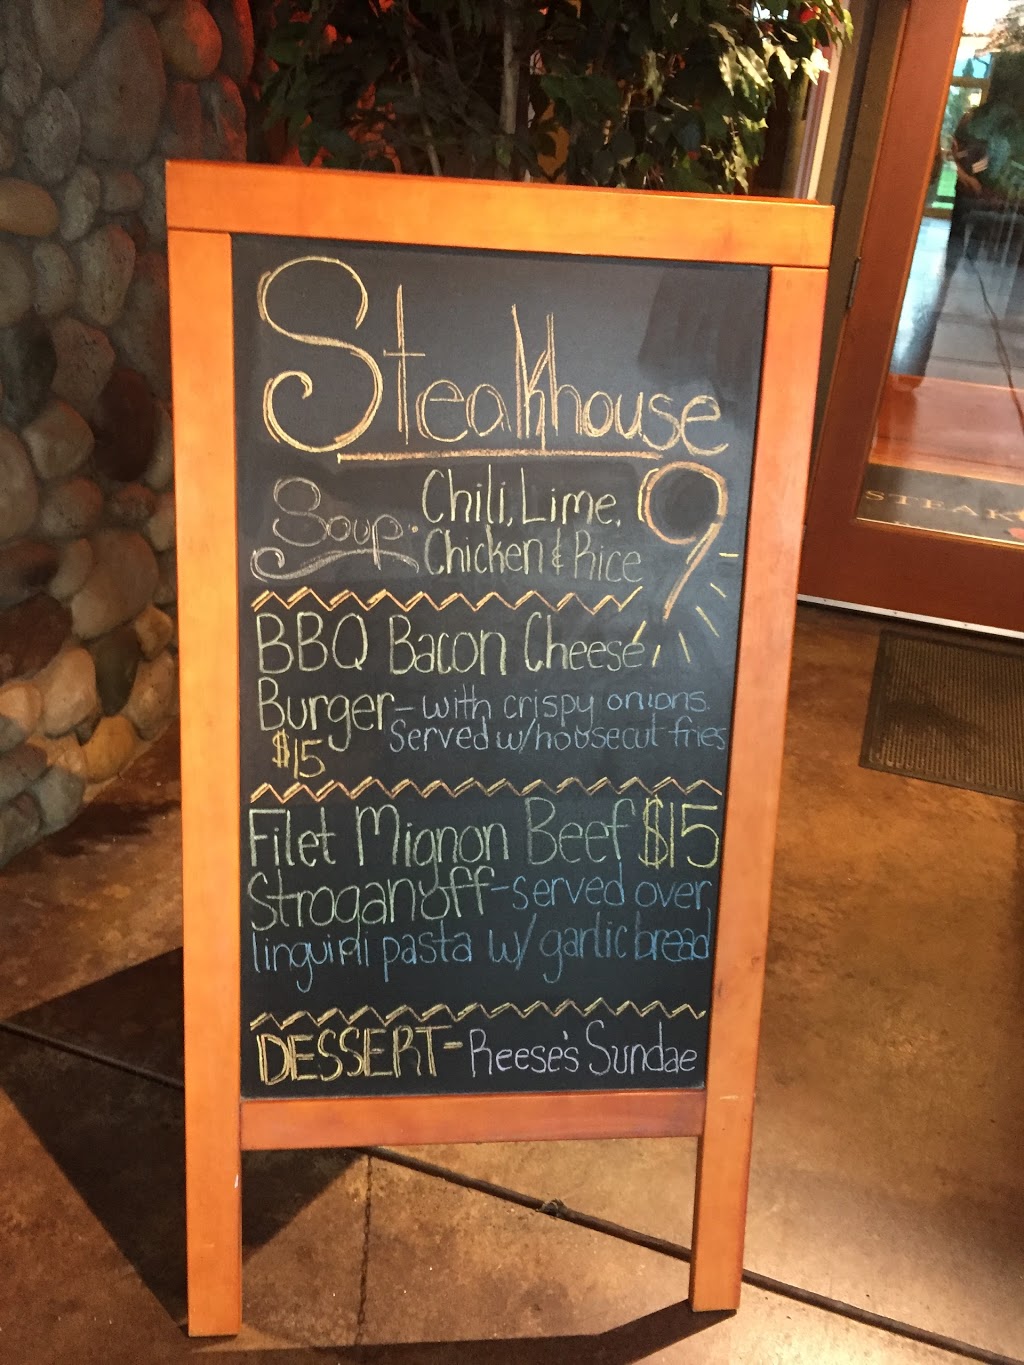 Steakhouse
9
Soup: Chili, Lime,
Chicken & Rice
BBQ Bacon Cheese
Burger - with crispy onions.
Served w/housecut fries
$15
Filet Mignon Beef $15
Stroganoff - served over
linguini pasta w/ garlic bread
DESSERT - Reese's Sundae
STEAK